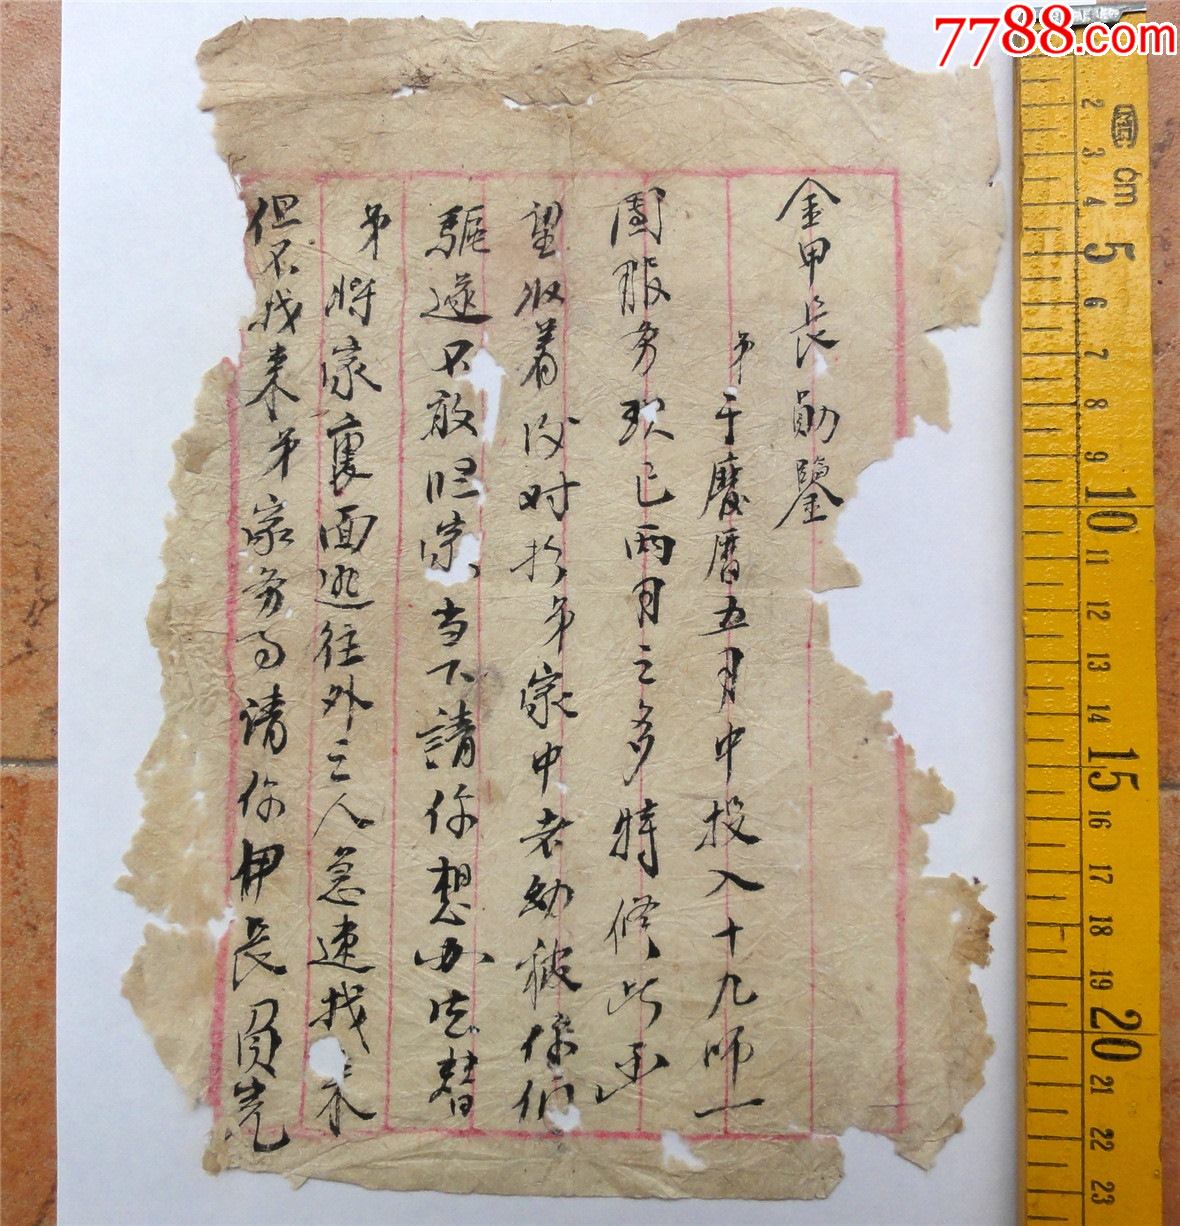 金甲長勛鑒
弟于廢曆五月中投入十九师一
團服务现已两月之多特修此函
望收着后对於弟家中老幼被你们
驅逐只敢但 当下請你想办法替
弟将家裏面逃往外之人急速找来
但不找来弟家务事请你甲長員
7788.com
cm
2
3
4
5
6
7
8
9
10
11
12
13
14
15
16
17
18
19
20
21
22
23